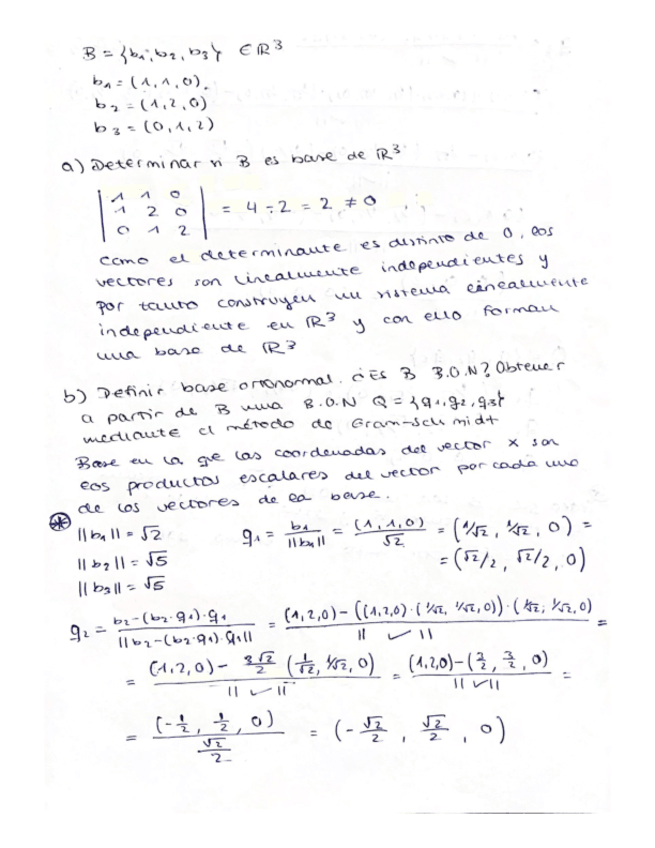 B = {b1; b2, b3} ∈ ℝ³
b1 = (1, 1, 0)
b2 = (1, 2, 0)
b3 = (0, 1, 2)
a) Determinar si B es base de ℝ³
| 1 1 0 |
| 1 2 0 | = 4 - 2 = 2 ≠ 0
| 0 1 2 |
como el determinante es distinto de 0, los
vectores son linealmente independientes y
por tanto construyen un sistema linealmente
independiente en ℝ³ y con ello forman
una base de ℝ³
b) Definir base ortonormal. ¿Es B B.O.N? Obtener
a partir de B una B.O.N Q = {q1, q2, q3}
mediante el método de Gram-schmidt
Base en la que las coordenadas del vector x son
los productos escalares del vector por cada uno
de los vectores de la base.
⊛ ||b1|| = √2 q1 = b1/||b1|| = (1, 1, 0)/√2 = (1/√2, 1/√2, 0) =
||b2|| = √5 = (√2/2, √2/2, 0)
||b3|| = √5
q2 = b2-(b2·q1)·q1 / ||b2-(b2·q1)·q1|| = (1,2,0) - ((1,2,0)·(1/√2, 1/√2, 0))·(1/√2; 1/√2, 0) / || ✓ || =
= (1,2,0) - 3√2/2 (1/√2, 1/√2, 0) / || ✓ || = (1,2,0)-(3/2, 3/2, 0) / || ✓ || =
= (-1/2, 1/2, 0) / (√2/2) = (-√2/2, √2/2, 0)